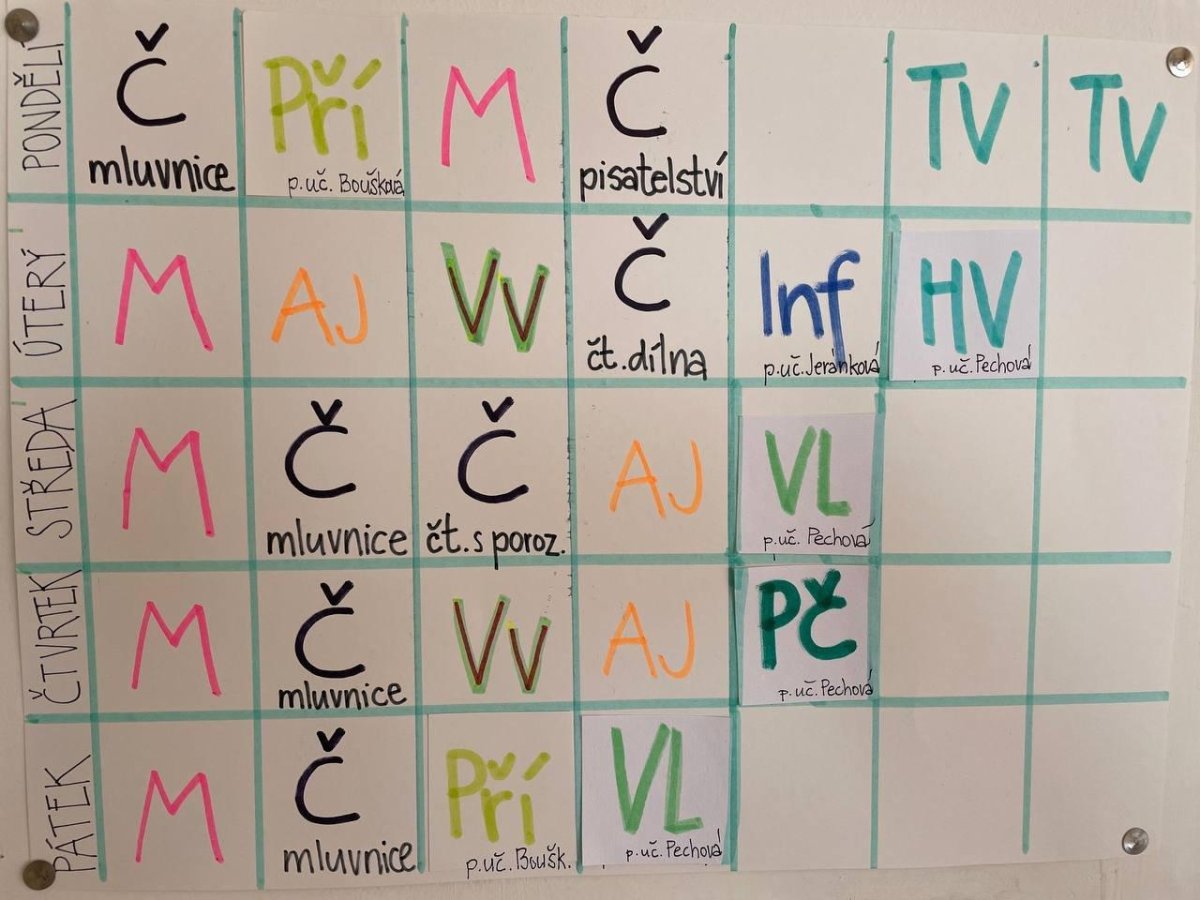 PONDĚLÍ
Č
mluvnice
Pří
p.uč. Boušková
M
Č
pisatelství
TV
TV
ÚTERÝ
M
AJ
Vv
Č
čt. dílna
Inf
p.uč. Jeránková
HV
p.uč. Pechová
STŘEDA
M
Č
mluvnice
Č
čt. s poroz.
AJ
VL
p.uč. Pechová
ČTVRTEK
M
Č
mluvnice
Vv
AJ
PČ
p.uč. Pechová
PÁTEK
M
Č
mluvnice
Pří
p.uč.Boušk.
VL
p.uč. Pechová